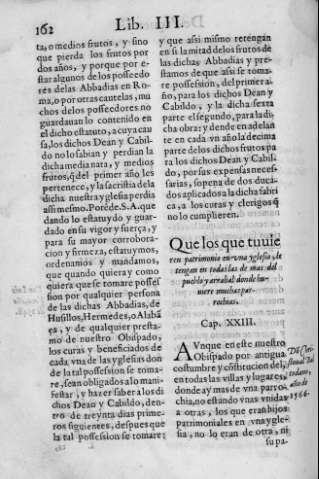 162 Lib. III.
ta, o medios frutos, y sino
que pierda los frutos por
dos años, y porque por e-
star algunos de los posseedo
res delas Abbadias en Ro-
ma, o por otras cautelas, mu
chos delos posseedores no
guardauan lo contenido en
el dicho estatuto, a cuya cau
sa, los dichos Dean y Cabil-
do no lo sabian y perdian la
dicha media nata, y medios
frutos, q̃ del primer año les
pertenece, y la sacristia dela
dicha nuestra yglesia perdia
assi mesmo. Porẽde. S. A. que
dando lo estatuydo y guar-
dado en su vigor y fuerça, y
para su mayor corrobora-
cion y firmeza, estatuymos,
ordenamos y mandamos,
que quando quiera y como
quiera que se tomare posses
sion por qualquier persona
de las dichas Abbadias, de
Husillos, Hermedes, o Alabã
ça, y de qualquier presta-
mo de nuestro Obispado,
los curas y beneficiados de
cada vna de las yglesias don
de la tal possession se toma-
re, sean obligados a lo mani-
festar, y hazer saber a los di
chos Dean y Cabildo, den-
tro de treynta dias prime-
ros siguientes, despues que
la tal possession se tomare:
y que assi mismo retengan
en si la mitad delos frutos de
las dichas Abbadias y pre-
stamos de que assi se toma-
re possession, del primer a-
ño, para los dichos Dean y
Cabildo, y la dicha sexta
parte el segundo, para la di-
cha obra: y dende en adelan
te en cada vn año la decima
parte delos dichos frutos pa
ra los dichos Dean y Cabil-
do, por sus expensas neces-
sarias, so pena de dos duca-
dos aplicados a la dicha fabri
ca, a los curas y clerigos q̃
no lo cumplieren.
Que los que tuuie
ren patrimonio en vna yglesia, le
tengan en todas las de mas del
pueblo y arrabal donde hu-
uiere muchas par-
rochas.
Cap. XXIII.
AVnque en este nuestro
Obispado por antigua
costumbre y cõstitucion del,
en todas las villas y lugares,
donde ay mas de vna parro-
chia, no estando vnas vnidas
a otras, los que eran hijos
patrimoniales en vna ygle-
sia, no lo eran de otra, ni
su pa-